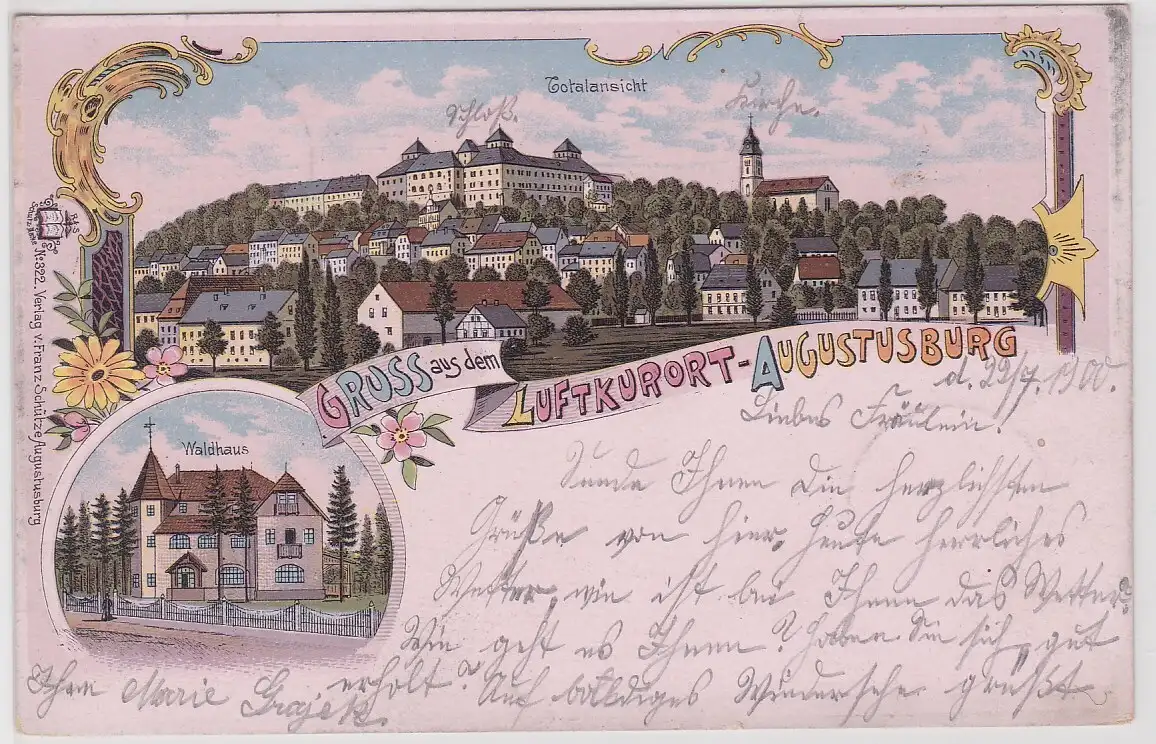 Totalansicht
Schloß.
Kirche.
GRUSS aus dem
LUFTKURORT-AUGUSTUSBURG
Waldhaus
No 322. Verlag v. Franz Schütze Augustusburg
d. 22/7. 1900.
Liebes Fräulein!
Sende Ihnen die herzlichsten
Grüße von hier, heute herrliches
Wetter, wie ist bei Ihnen das Wetter?
Wie geht es Ihnen? Haben Sie sich gut
erholt? Auf baldiges Wiedersehn grüßt
Ihre Marie